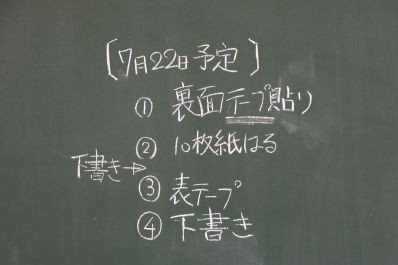 [7月22日予定]
① 裏面テープ貼り
② 10枚紙はる
下書き→
③ 表テープ
④ 下書き